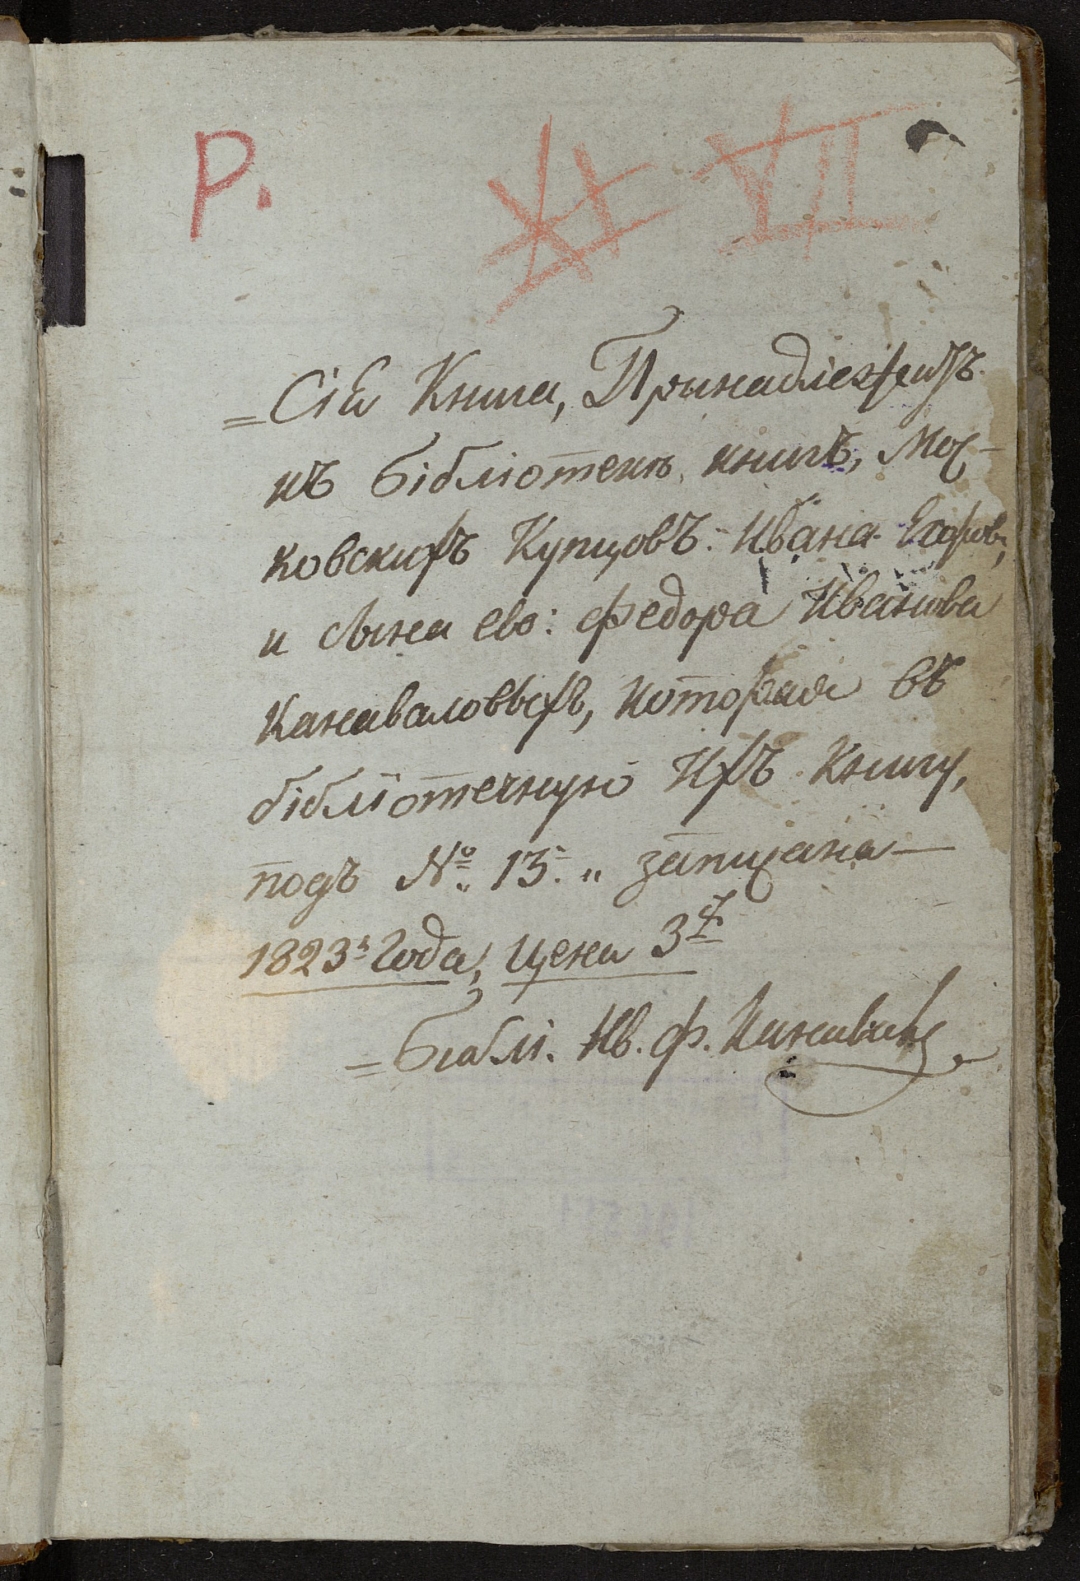 Р. XI VII
= Сія Книга, Принадлежитъ
къ бібліотекѣ, книгъ, Мос-
ковскихъ Купцовъ: Ивана Егоров,
и сына ево: Федора Иванова
Канаваловыхъ, которая въ
бібліотечную Ихъ Книгу,
подъ №. 13. „ записана —
1823 Года, цена 3
= Библі. Ив. Ф.